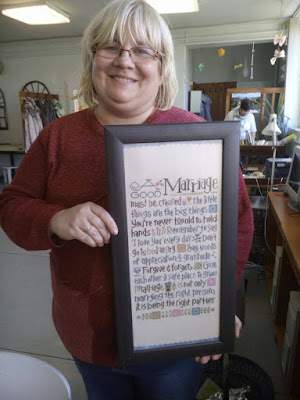 A GOOD Marriage
must be created the little
things are the big things
you're never too old to hold
hands Remember to say
"I love you" every day Don't
go to bed angry Say words
of appreciation & gratitude
Forgive & forget Give
each other a safe place to grow
Marriage is not only
marrying the right person,
it is being the right partner